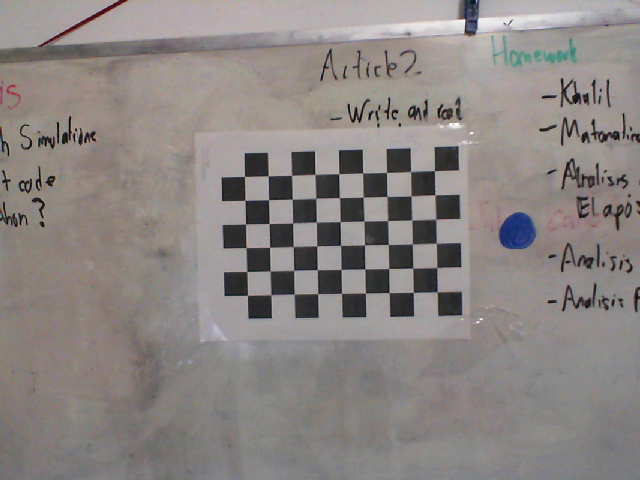 is
h Simulatione
t code
hon?
Article 2
- Write and read
Homework
- Khalil
-
- Analisis
El apos
- Analisis
- Analisis F